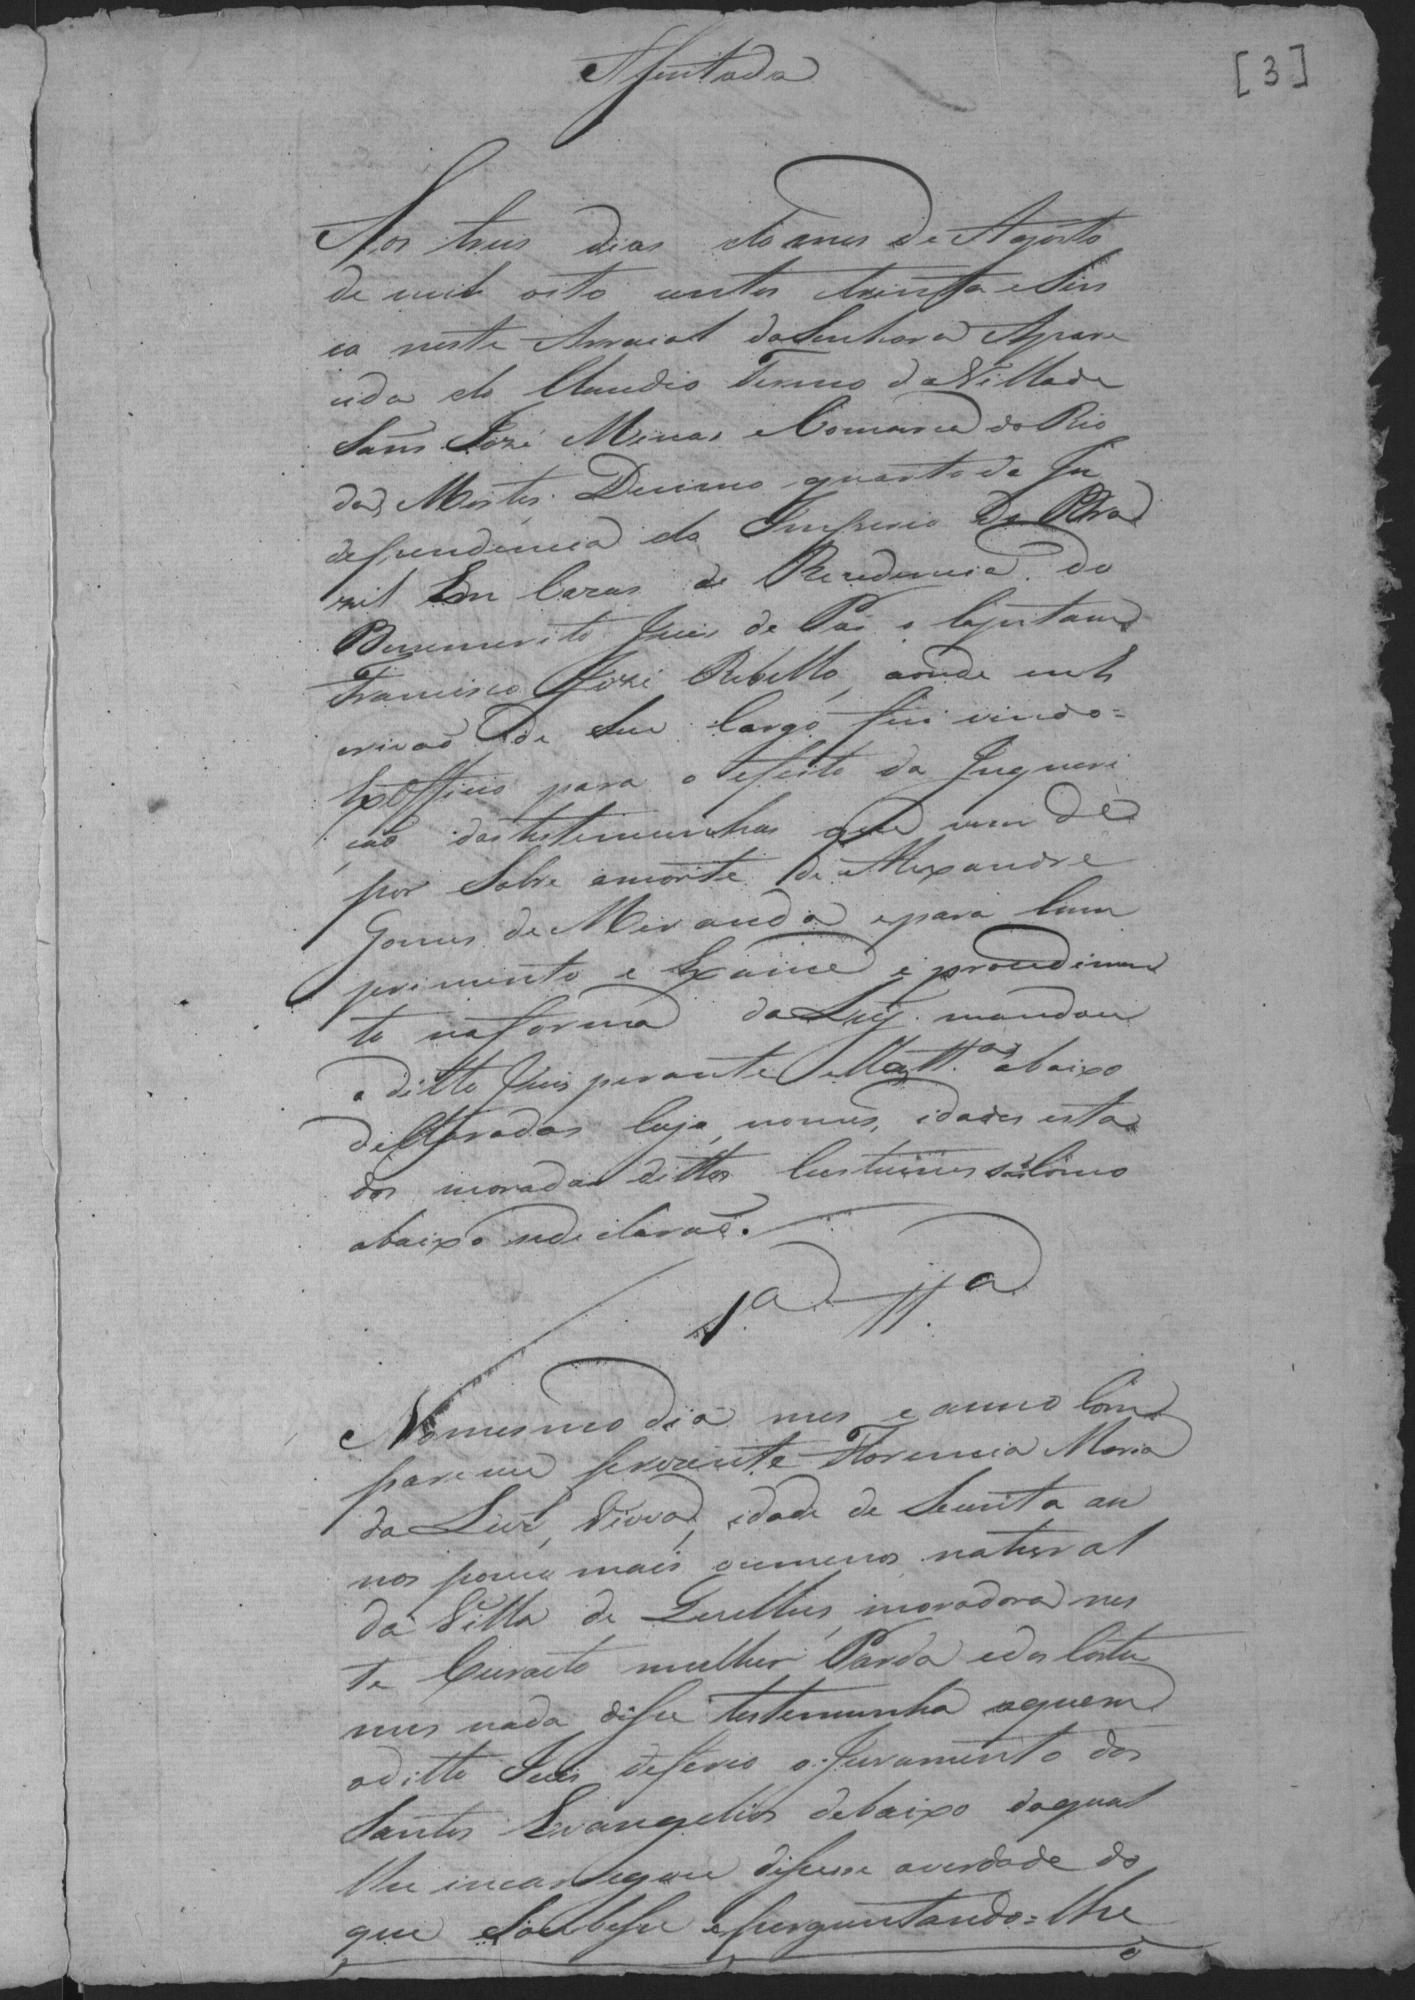 Assentada
[3]
Aos tres dias do mes de Agosto
de mil oito centos trinta e Sin
co neste Arraial da Senhora Apare
cida do Claudio Termo da Villa de
Sam Jozé Minas e Comarca do Rio
das Mortes. Decimo quarto da In
dependencia do Imperio do Bra
zil Em Cazas de Rezidencia do
Benemerito Juis de Pas o Capitam
Francisco Jozé Rebello, aonde eu Es
crivaõ de Seu Cargo fui vindo=
Ex Officio para o efeito da Inqueri
caõ das testemunhas que vem de
por Sobre amorte de Alexandre
Gomes de Miranda e para Cum
primento e Exame e procedimen
to na forma da Ley mandou
o ditto Juis perante as tt.as abaixo
declaradas Cujo nomes, idades esta
dos moradas dittos Custumes saõ Como
abaixo sedeclaraõ.
1.a tt.a
No mesmo dia mes e anno Com
pareceu prezente Florencia Maria
da Luz, Viuva, idade de Secenta an
nos pouco mais oumenos natural
da Villa de Queluis, moradora nes
te Curato mulher Parda e dos Costu
mes nada disse testemunha aquem
o ditto Juis deferio o Juramento dos
Santos Evangelios debaixo do qual
lhe incarregou dissesse averdade do
que Soubesse e perguntando=lhe
o